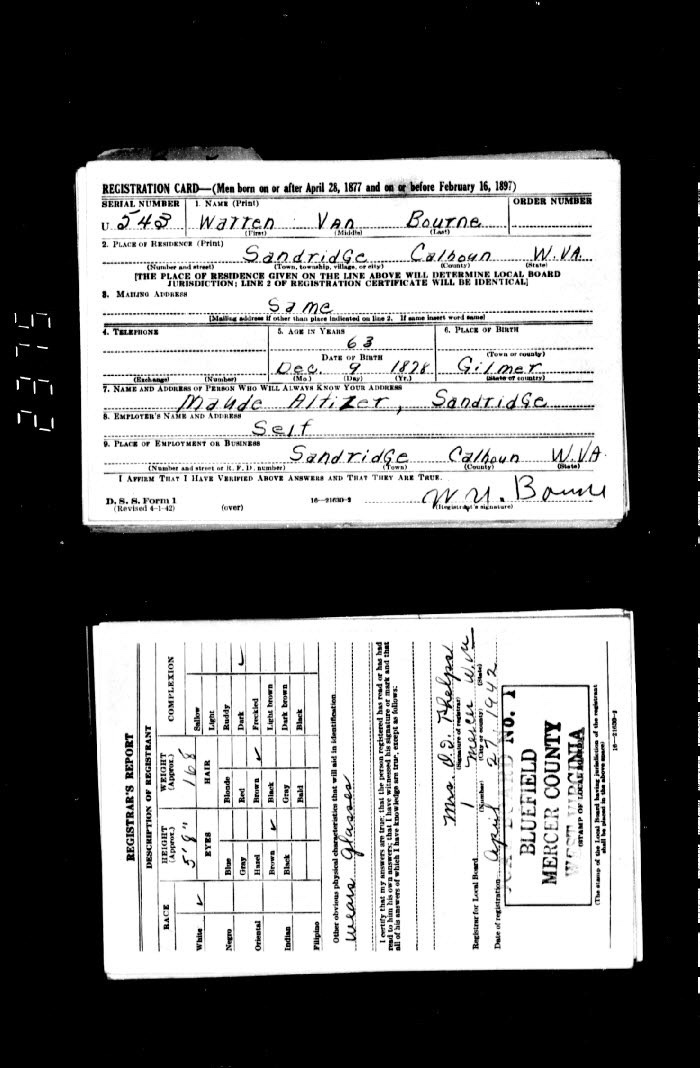 REGISTRATION CARD—(Men born on or after April 28, 1877 and on or before February 16, 1897)
SERIAL NUMBER 1. NAME (Print) ORDER NUMBER
U 543 Warren Van Bourne
(First) (Middle) (Last)
2. PLACE OF RESIDENCE (Print)
Sandridge Calhoun W.VA.
(Number and street) (Town, township, village, or city) (County) (State)
[THE PLACE OF RESIDENCE GIVEN ON THE LINE ABOVE WILL DETERMINE LOCAL BOARD
JURISDICTION; LINE 2 OF REGISTRATION CERTIFICATE WILL BE IDENTICAL]
3. MAILING ADDRESS
Same
[Mailing address if other than place indicated on line 2. If same insert word same]
4. TELEPHONE 5. AGE IN YEARS 6. PLACE OF BIRTH
63
DATE OF BIRTH (Town or county)
Dec. 9 1878 Gilmer
(Exchange) (Number) (Mo.) (Day) (Yr.) (State or country)
7. NAME AND ADDRESS OF PERSON WHO WILL ALWAYS KNOW YOUR ADDRESS
Maude Altizer, Sandridge
8. EMPLOYER'S NAME AND ADDRESS
Self
9. PLACE OF EMPLOYMENT OR BUSINESS
Sandridge Calhoun W.VA.
(Number and street or R. F. D. number) (Town) (County) (State)
I AFFIRM THAT I HAVE VERIFIED ABOVE ANSWERS AND THAT THEY ARE TRUE.
D. S. S. Form 1
(Revised 4-1-42) (over) 16—21630-2 W V. Bourne
(Registrant's signature)
2375
REGISTRAR'S REPORT
DESCRIPTION OF REGISTRANT
RACE HEIGHT (Approx.) WEIGHT (Approx.) COMPLEXION
5' 8" 168
EYES HAIR
White ✓ Sallow
Light
Negro Blue Blonde Ruddy
Gray Red Dark ✓
Oriental Hazel Brown ✓ Freckled
Brown ✓ Black Light brown
Indian Black Gray Dark brown
Bald Black
Filipino
Other obvious physical characteristics that will aid in identification
Wears Glasses
I certify that my answers are true; that the person registered has read or has had
read to him his own answers; that I have witnessed his signature or mark and that
all of his answers of which I have knowledge are true, except as follows:
Mrs. O.V. Phelps
(Signature of registrar)
Registrar for Local Board 1 Mercer W.Va
(Number) (City or county) (State)
Date of registration April 27, 1942
NO. 1
BLUEFIELD
MERCER COUNTY
WEST VIRGINIA
(STAMP OF LOCAL BOARD)
(The stamp of the Local Board having jurisdiction of the registrant
shall be placed in the above space)
16—21630-1